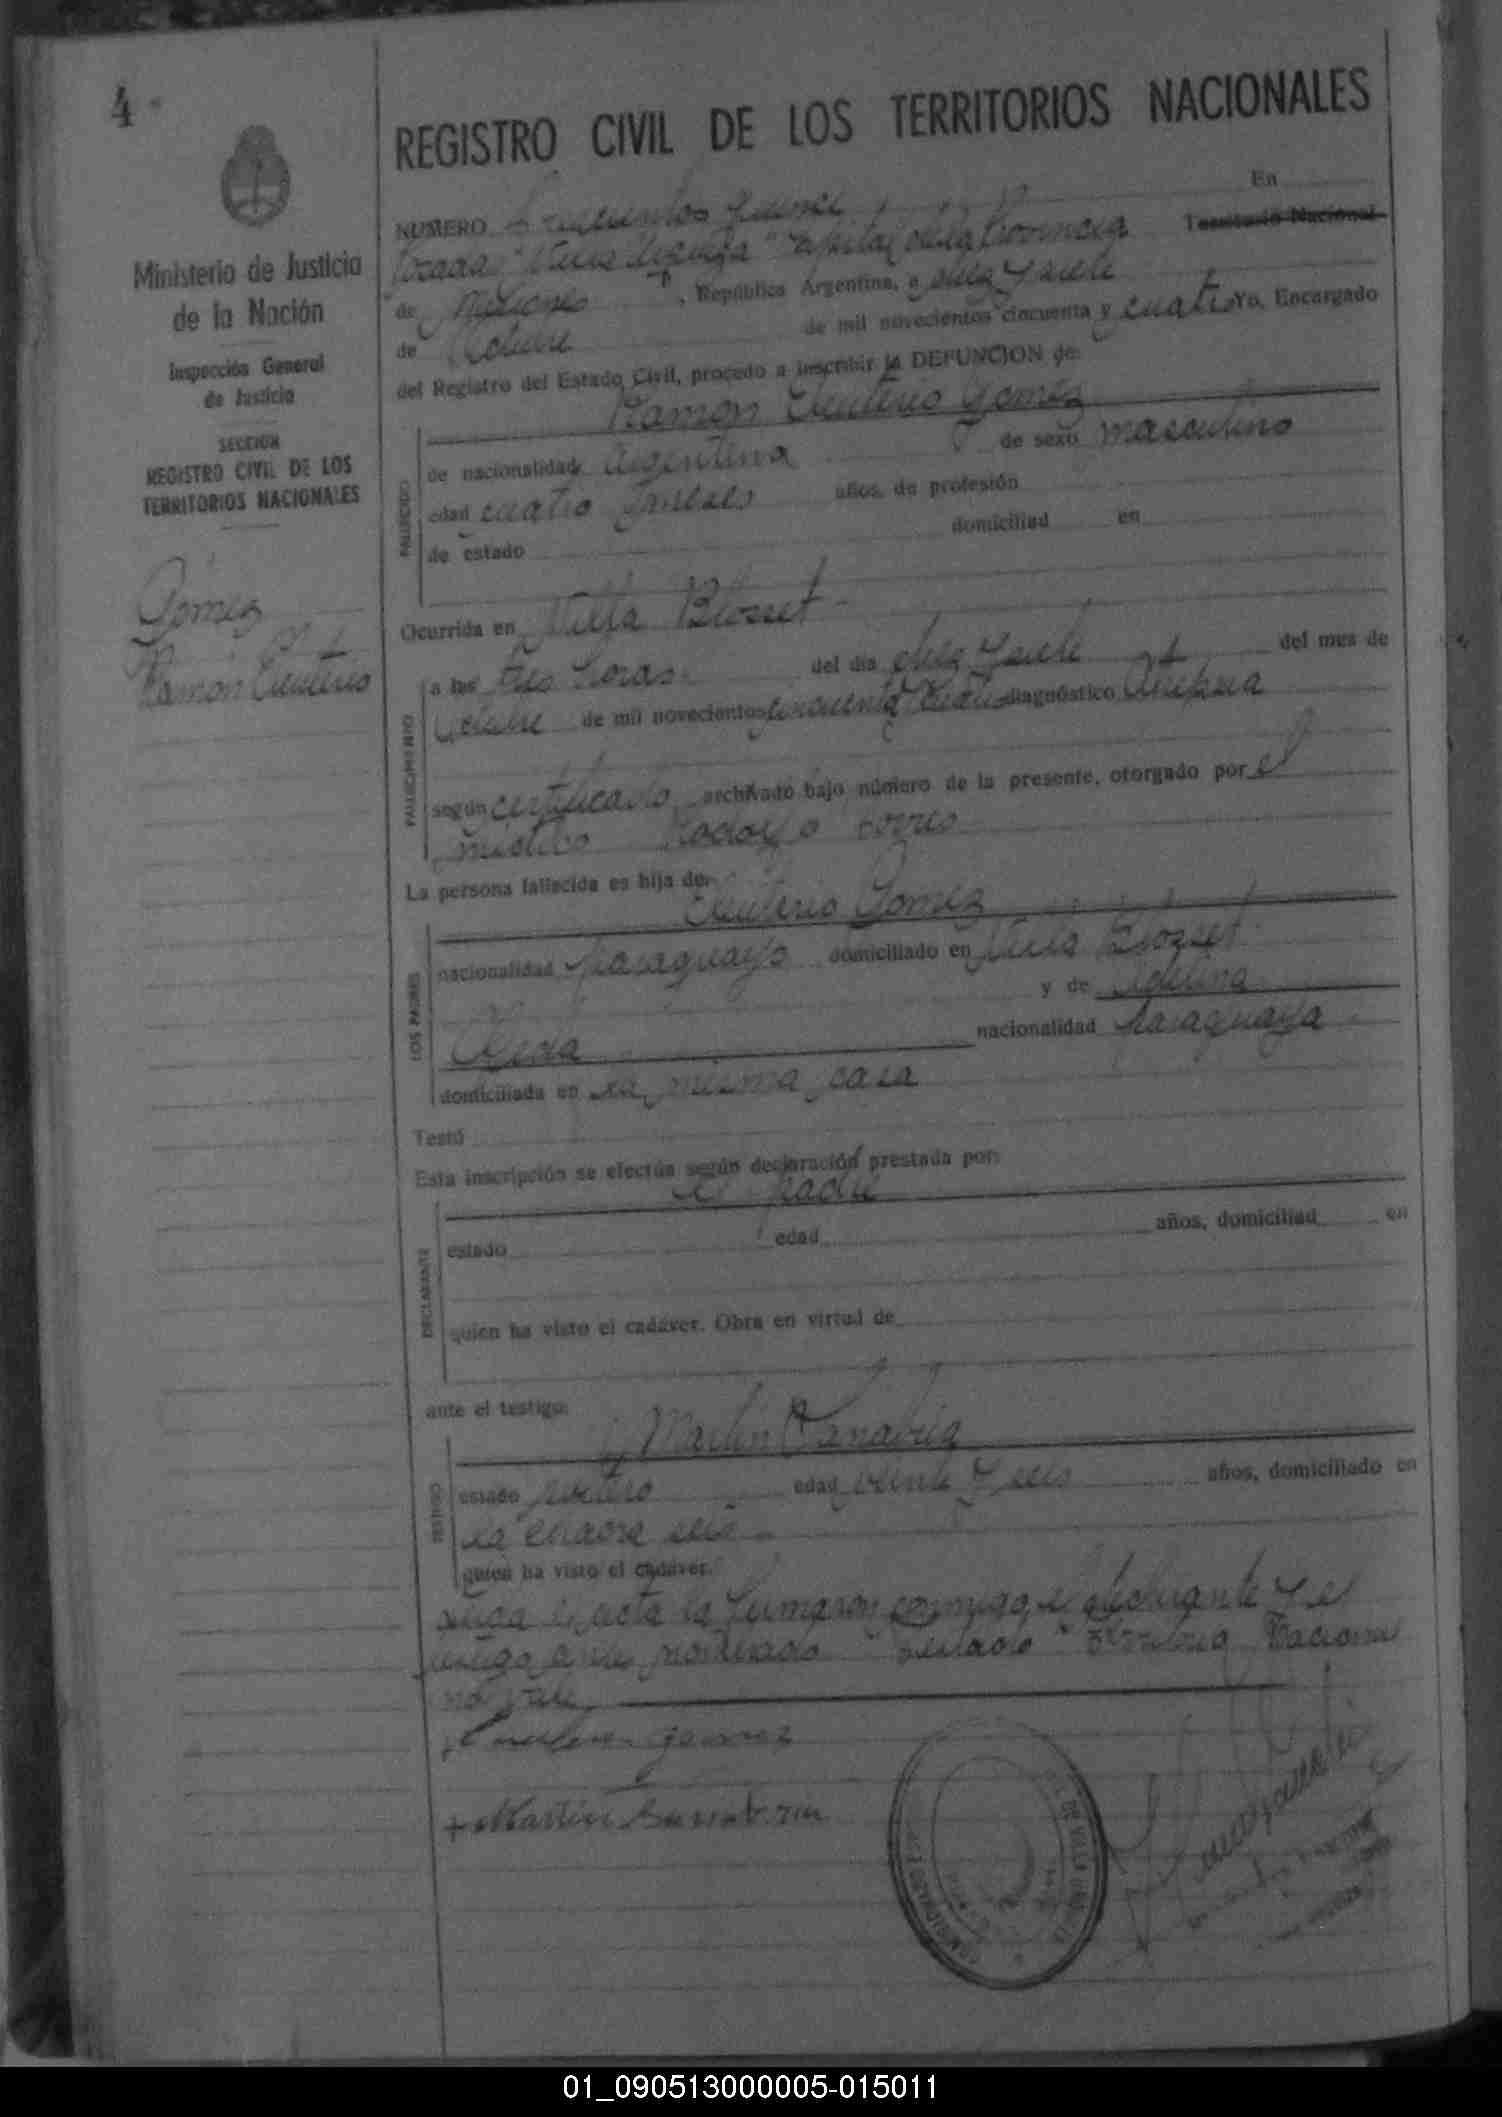 4
REGISTRO CIVIL DE LOS TERRITORIOS NACIONALES
Ministerio de Justicia
de la Nación
Inspección General
de Justicia
SECCION
REGISTRO CIVIL DE LOS
TERRITORIOS NACIONALES
Gómez
Ramón Eleuterio
NUMERO En
capital de la Provincia Territorio Nacional
de Misiones, República Argentina, a diez y siete
de Octubre de mil novecientos cincuenta y cuatro Yo, Encargado
del Registro del Estado Civil, procedo a inscribir la DEFUNCION de:
Ramón Eleuterio Gómez
FALLECIDO
de nacionalidad argentina de sexo masculino
edad cuatro meses años, de profesión
de estado domiciliad en
Ocurrida en Villa Blosset
FALLECIMIENTO
a las tres horas del día diez y siete del mes de
Octubre de mil novecientos cincuenta y cuatro diagnóstico
según certificado archivado bajo número de la presente, otorgado por el
médico Rodolfo Torres
La persona fallecida es hija de:
Eleuterio Gómez
LOS PADRES
nacionalidad paraguayo domiciliado en Villa Blosset
y de
nacionalidad paraguaya
domiciliada en la misma casa
Testó
Esta inscripción se efectúa según declaración prestada por:
el padre
DECLARANTE
estado edad años, domiciliad en
quien ha visto el cadáver. Obra en virtud de
ante el testigo:
Martín Sanabria
TESTIGO
estado soltero edad veinte y seis años, domiciliado en
la chacra seis
quien ha visto el cadáver.
acta la firmaron conmigo el declarante y el
testigo antes nombrado Testado "Territorio Nacional
no vale
Gomez
+ Martin Sanabria
01_090513000005-015011